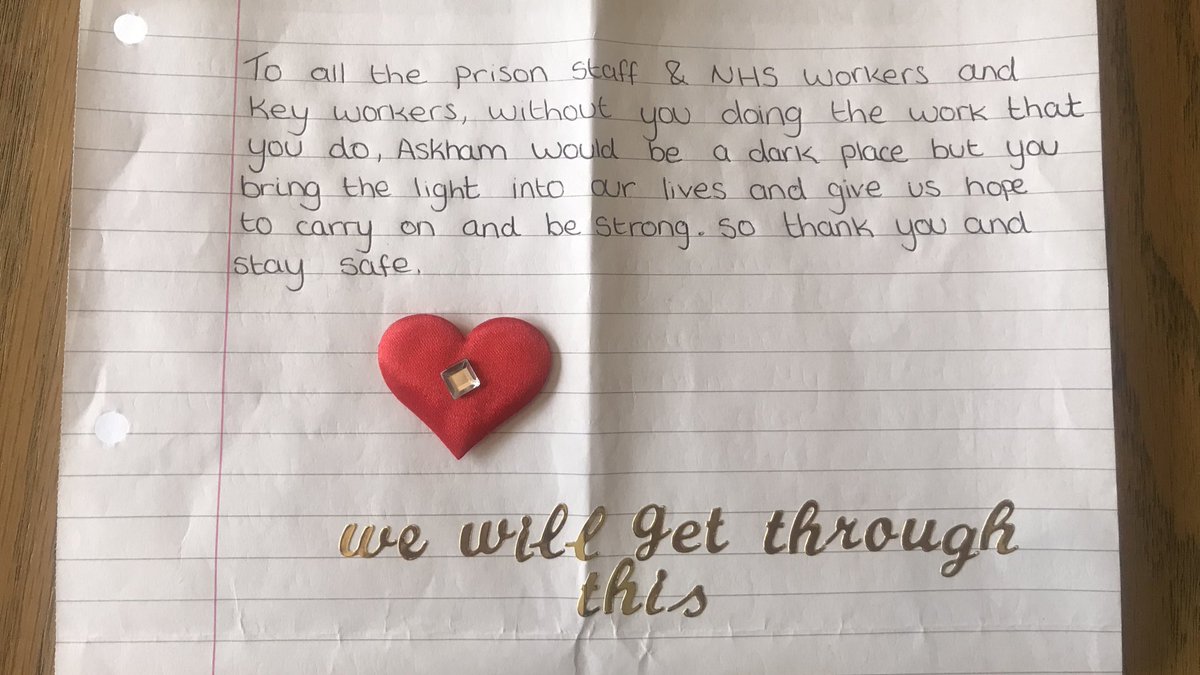 To all the prison staff & NHS workers and
Key workers, without you doing the work that
you do, Askham would be a dark place but you
bring the light into our lives and give us hope
to carry on and be strong. So thank you and
stay safe.
we will get through
this